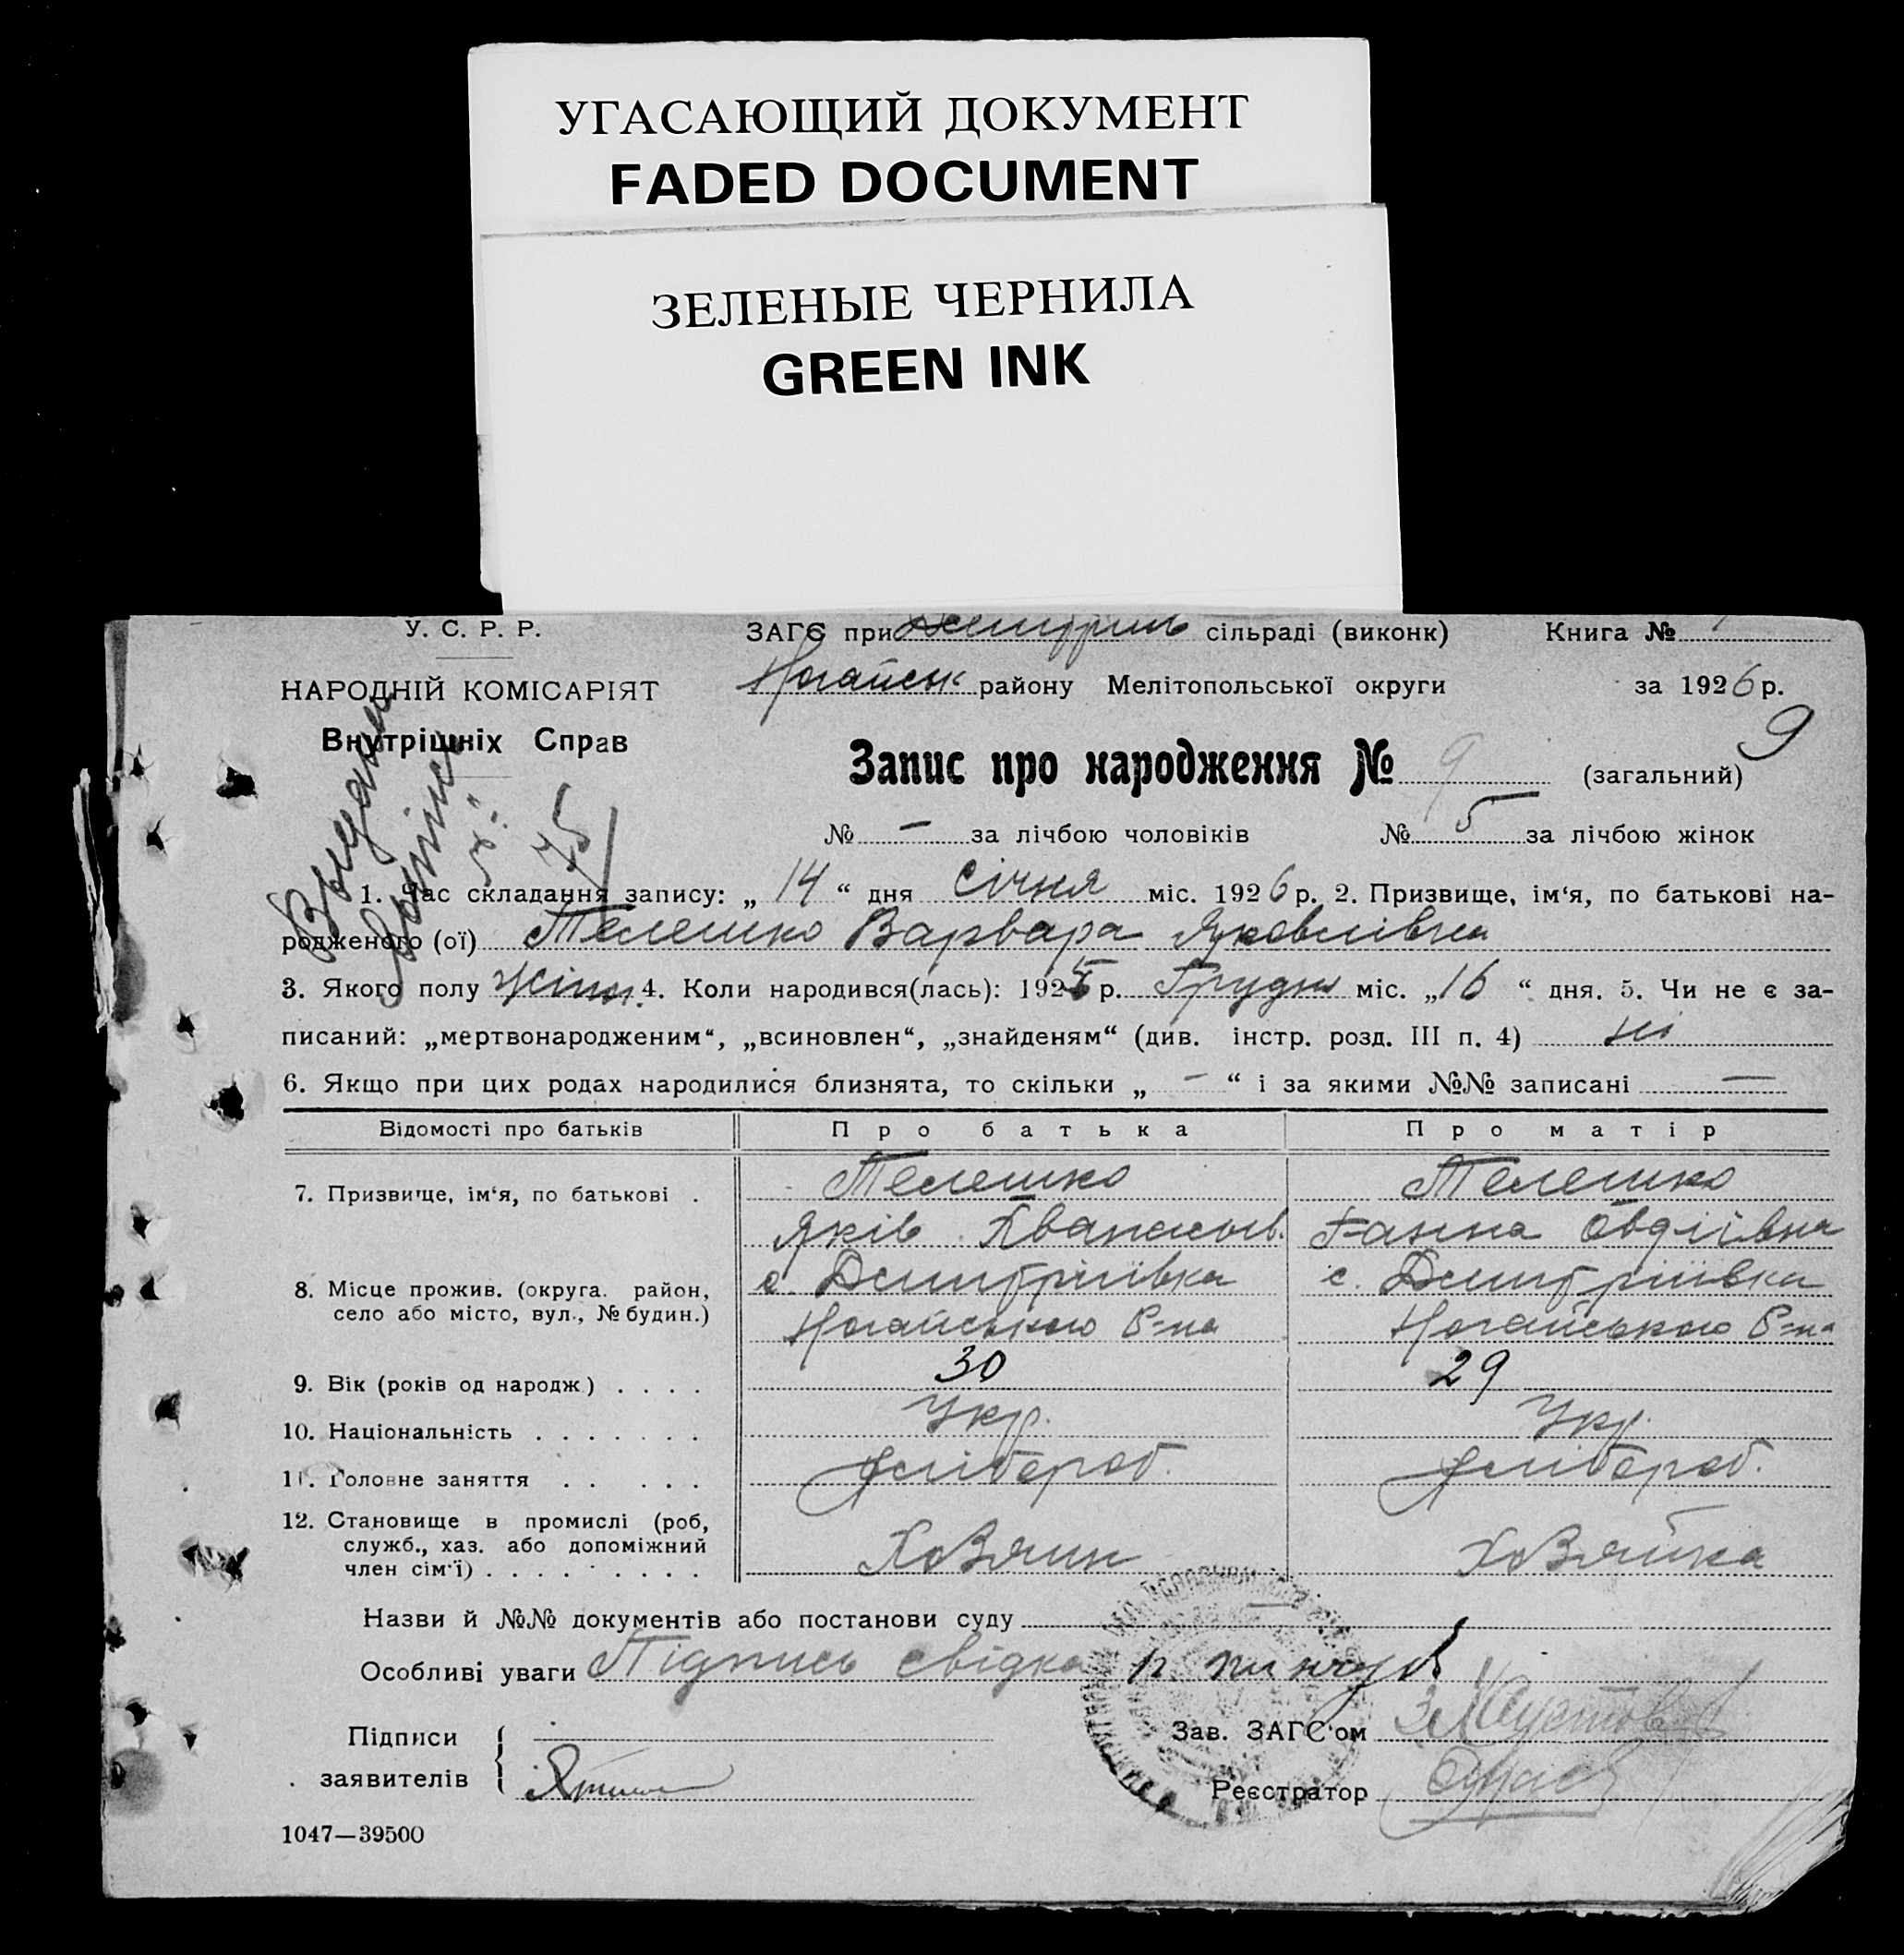 УГАСАЮЩИЙ ДОКУМЕНТ
FADED DOCUMENT
ЗЕЛЕНЫЕ ЧЕРНИЛА
GREEN INK
У. С. Р. Р.
НАРОДНІЙ КОМІСАРІЯТ
Внутрішніх Справ
ЗАГС при сільраді (виконк) Книга №
Ногайськ району Мелітопольської округи за 1926 р.
9
Запис про народження № 9 (загальний)
№ — за лічбою чоловіків № 5 за лічбою жінок
1. Час складання запису: „ 14 “ дня Січня міс. 1926 р. 2. Призвище, ім‘я, по батькові на-
родженого (ої) Телешко Варвара Яковлівна
3. Якого полу жіноч. 4. Коли народився(лась): 1925 р. Грудня міс. „ 16 “ дня. 5. Чи не є за-
писаний: „мертвонародженим“, „всиновлен“, „знайденям“ (див. інстр. розд. III п. 4) ні
6. Якщо при цих родах народилися близнята, то скільки „ — “ і за якими №№ записані —
Відомості про батьків Про батька Про матір
7. Призвище, ім‘я, по батькові . Телешко Телешко
Яків Ганна Овдіївна
8. Місце прожив. (округа. район, с. Дмитріївка с. Дмитріївка
село або місто, вул., № будин.) Ногайського Р-на Ногайського Р-на
9. Вік (років од народж.) . . . . 30 29
10. Національність . . . . . . . Укр. Укр.
11. Головне заняття . . . . . Хлібороб. Хлібороб.
12. Становище в промислі (роб,
служб., хаз. або допоміжний Хозяин Хозяйка
член сім‘ї) . . . . . . . . .
Назви й №№ документів або постанови суду
Особливі уваги Підпись свідка
Підписи
заявителів
Зав. ЗАГС‘ом
Реєстратор
1047—39500